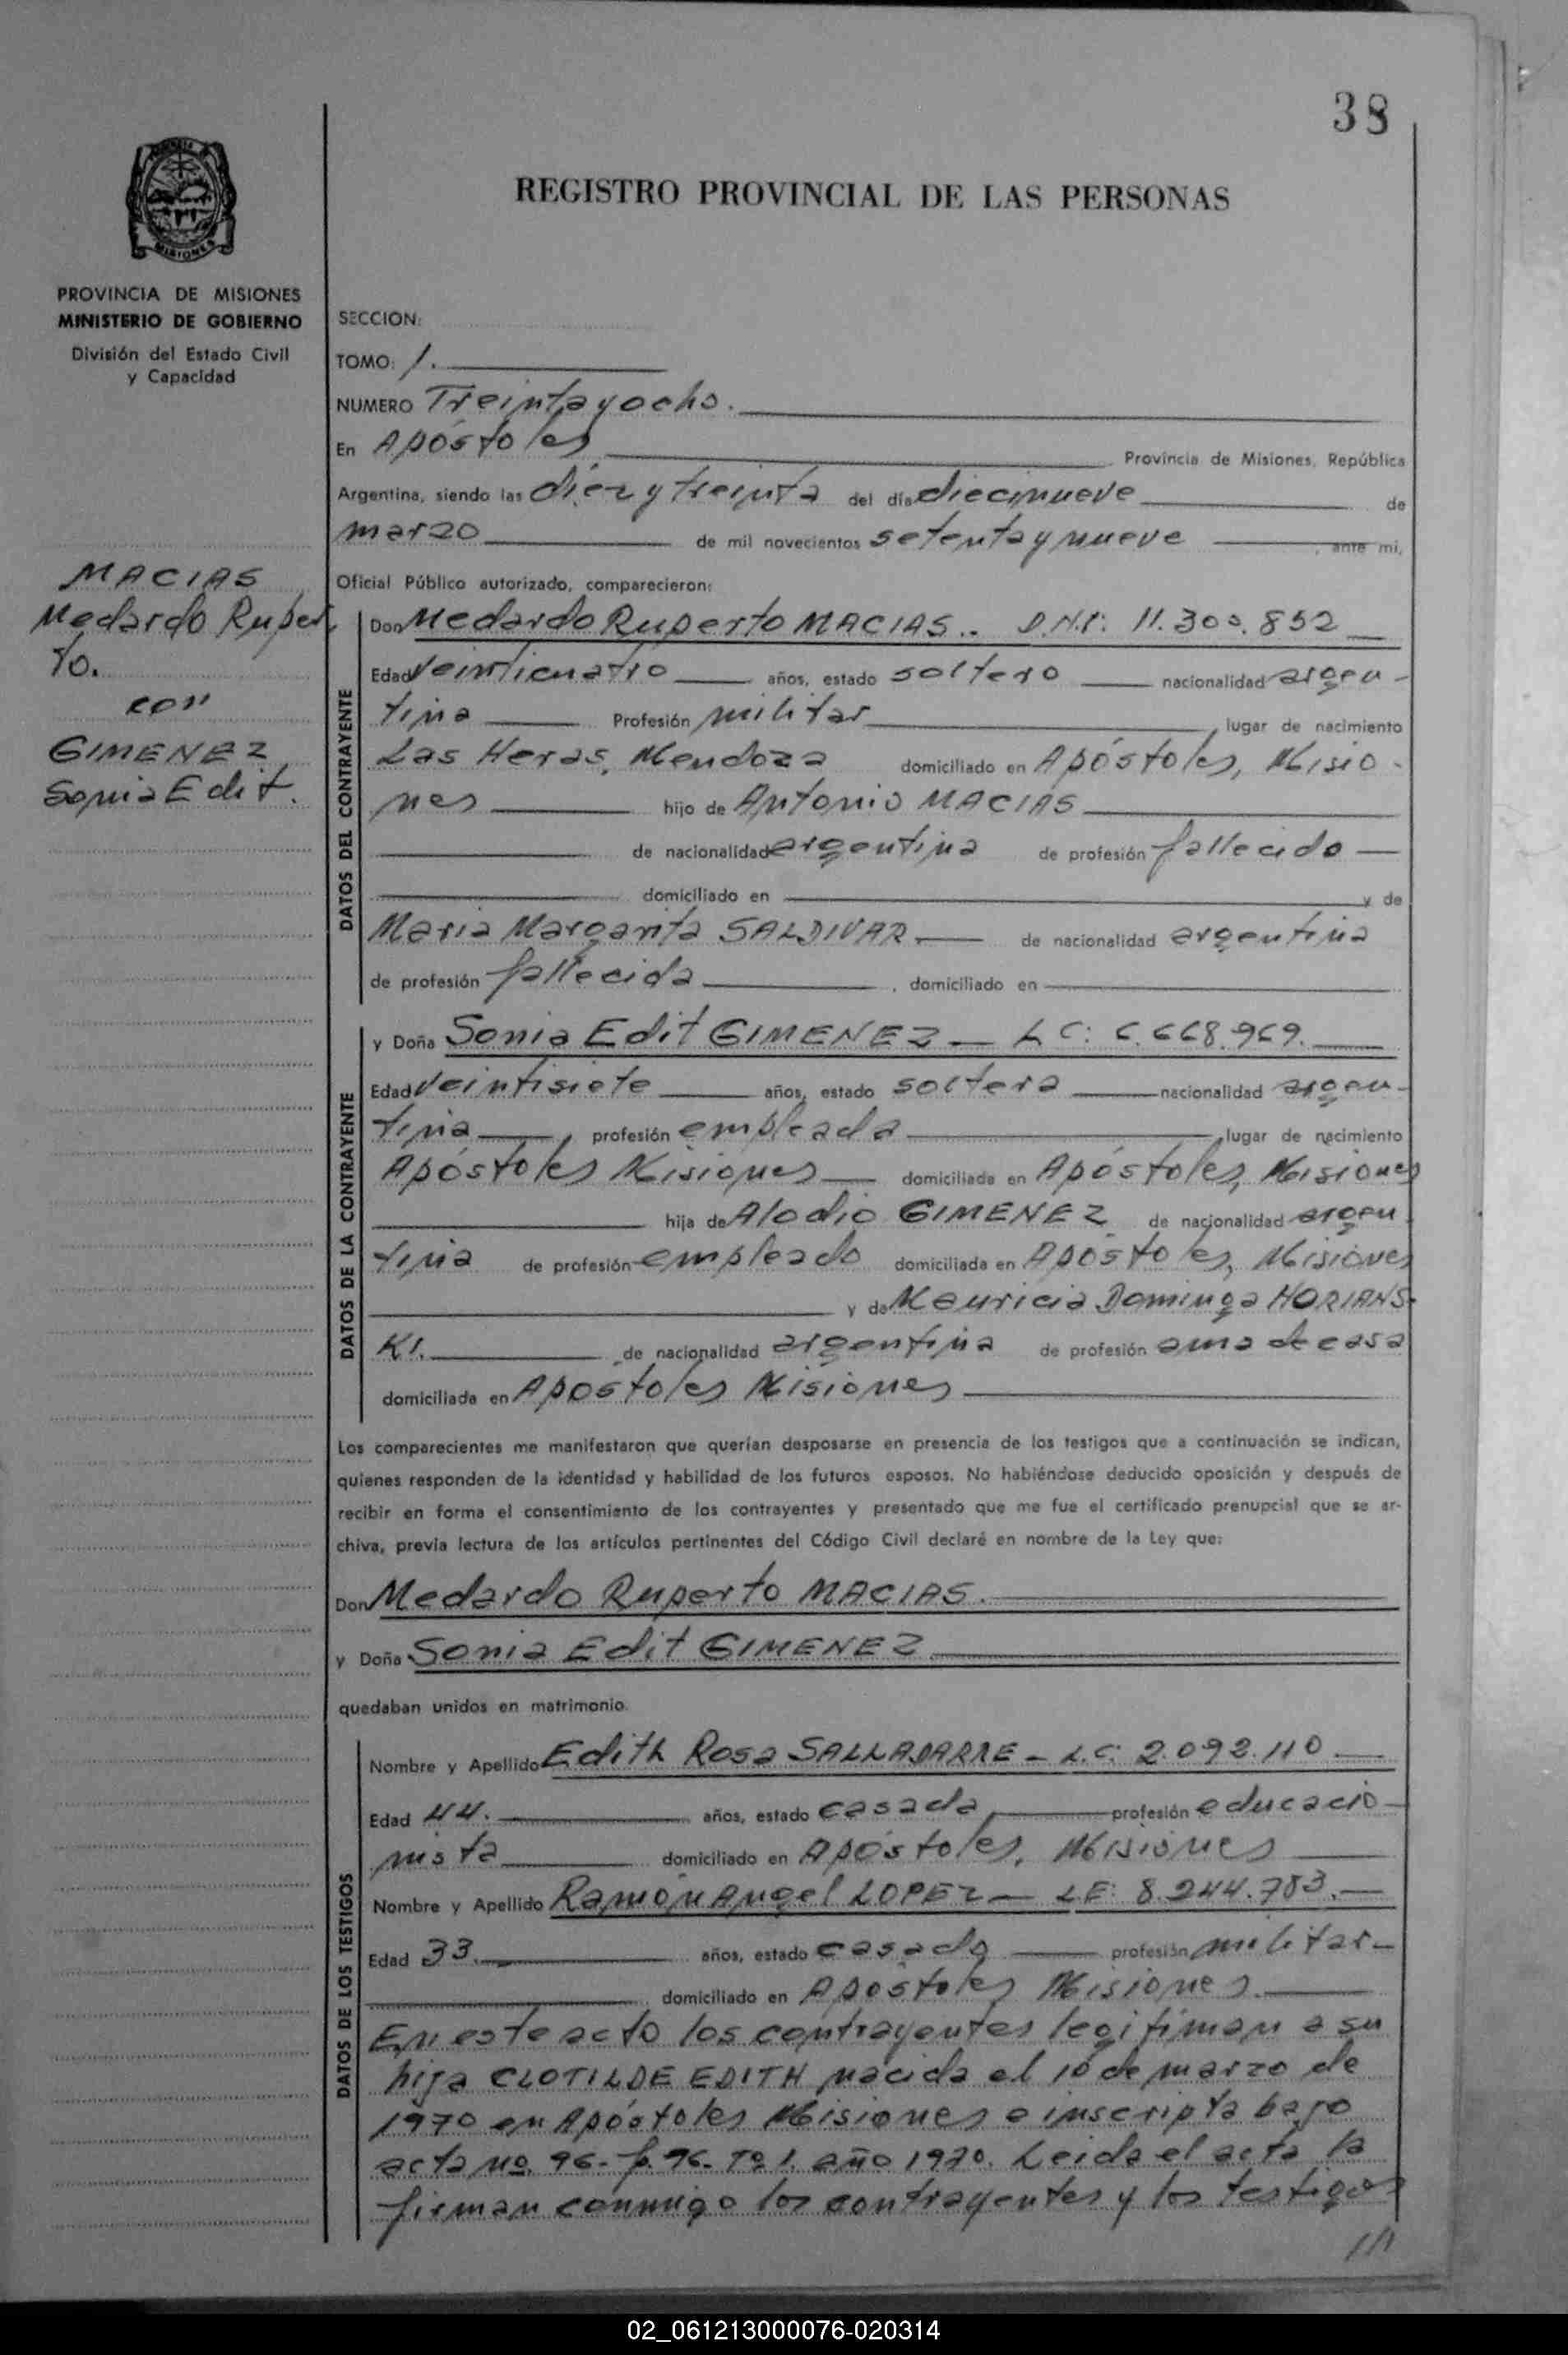 38
REGISTRO PROVINCIAL DE LAS PERSONAS
MISIONES
PROVINCIA DE MISIONES
MINISTERIO DE GOBIERNO
División del Estado Civil
y Capacidad
MACIAS
Medardo Ruper
to.
con
GIMENEZ
Sonia Edit.
SECCION:
TOMO: 1.
NUMERO Treinta y ocho.
En Apóstoles Provincia de Misiones, República
Argentina, siendo las diez y treinta del día diecinueve de
marzo de mil novecientos setenta y nueve, ante mi,
Oficial Público autorizado, comparecieron:
DATOS DEL CONTRAYENTE
Don Medardo Ruperto MACIAS.. D.N.I: 11.300.852
Edad veinticuatro años, estado soltero nacionalidad argen-
tina Profesión militar, lugar de nacimiento
Las Heras, Mendoza domiciliado en Apóstoles, Misio-
nes hijo de Antonio MACIAS
de nacionalidad argentina de profesión fallecido
domiciliado en y de
Maria Margarita SALDIVAR de nacionalidad argentina
de profesión fallecida, domiciliado en
DATOS DE LA CONTRAYENTE
y Doña Sonia Edit GIMENEZ - LC: 6.668.969.
Edad veintisiete años, estado soltera nacionalidad argen-
tina, profesión empleada, lugar de nacimiento
Apóstoles Misiones domiciliada en Apóstoles, Misiones
hija de Alodio GIMENEZ de nacionalidad argen
tina de profesión empleado domiciliada en Apóstoles, Misiones
y de Mauricia Dominga HORIANS-
KI. de nacionalidad argentina de profesión ama de casa
domiciliada en Apostoles Misiones
Los comparecientes me manifestaron que querían desposarse en presencia de los testigos que a continuación se indican,
quienes responden de la identidad y habilidad de los futuros esposos. No habiéndose deducido oposición y después de
recibir en forma el consentimiento de los contrayentes y presentado que me fue el certificado prenupcial que se ar-
chiva, previa lectura de los artículos pertinentes del Código Civil declaré en nombre de la Ley que:
Don Medardo Ruperto MACIAS.
y Doña Sonia Edit GIMENEZ
quedaban unidos en matrimonio.
DATOS DE LOS TESTIGOS
Nombre y Apellido Edith Rosa - L.C: 2.092.110
Edad 44. años, estado casada, profesión educacio-
nista domiciliado en Apóstoles, Misiones
Nombre y Apellido Ramón Angel LOPEZ - LE: 8.244.783.
Edad 33. años, estado casado profesión militar-
domiciliado en Apóstoles Misiones.
En este acto los contrayentes legitiman a su
hija CLOTILDE EDITH nacida el 10 de marzo de
1970 en Apóstoles Misiones e inscripta bajo
acta no. 96- f. 96- Tº 1. año 1970. Leida el acta la
firman conmigo los contrayentes y los testigos
///
02_061213000076-020314